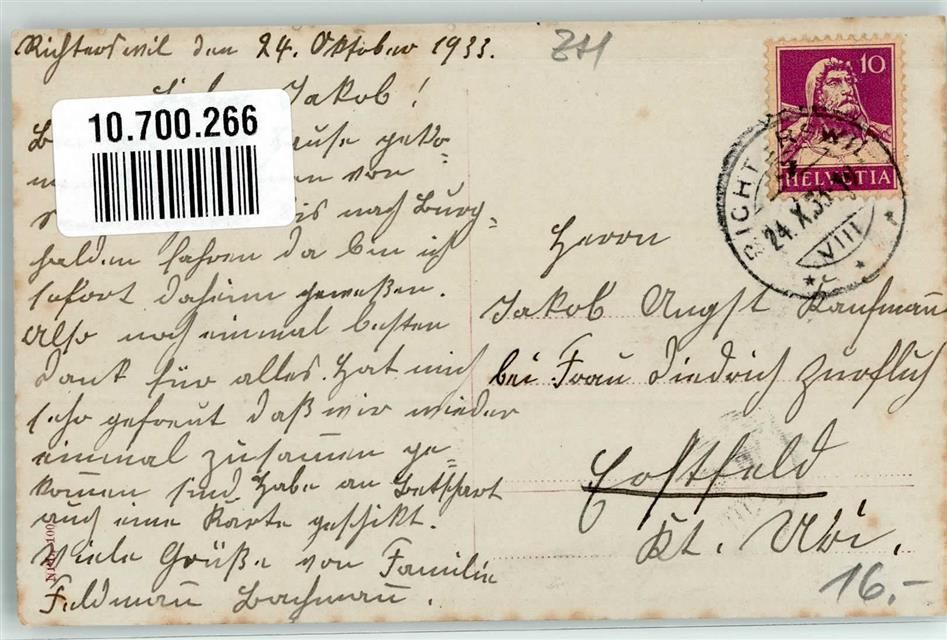 Richterswil den 24. Oktober 1933.
ZH
Jakob!
10.700.266
Hause geko=
von
bis nach Burg=
halden fahren da bin ich
sofort daheim geweßen.
Also noch einmal besten
Dank für alles. Hat mich
sehr gefreut daß wir wieder
einmal zusamen ge=
komen sind, habe an Betschart
auch eine Karte geschikt.
Viele Grüße von Familie
Feldman Bachman.
10
HELVETIA
RICHTERSWIL
24.X.33
VIII
Herrn
Jakob Angst Kaufman
bei Frau Diedrich Zürflüh
Kt. Uri.
16.-